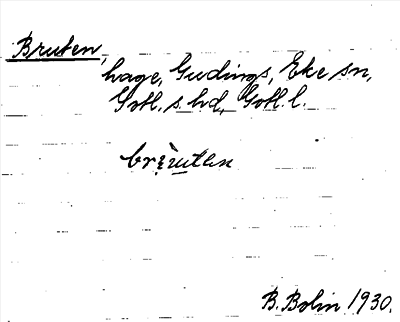 Bruten,
hage, Gudings, Eke sn,
Gotl. s. hd, Gotl. l.
brèutən
B. Bolin 1930.